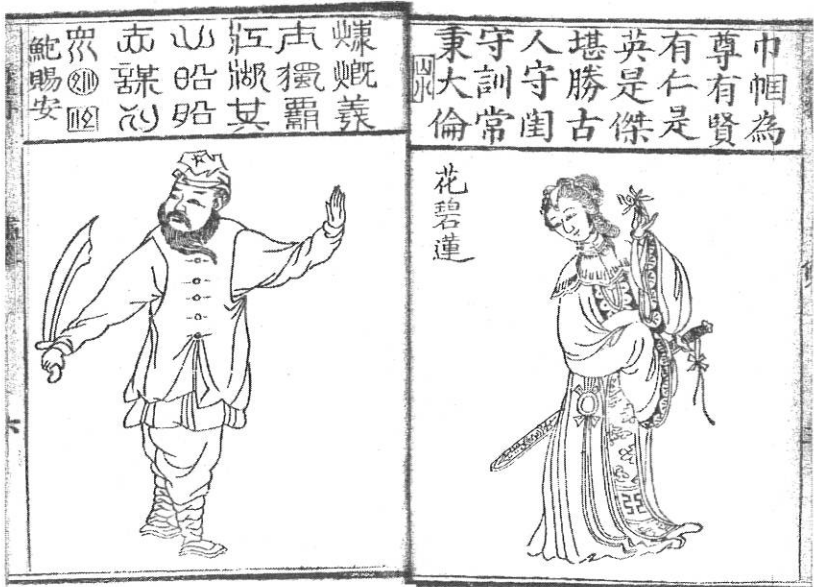 巾幗為
尊有賢
有仁是
英是傑
堪勝古
人守閨
守訓常
秉大倫
山水
花碧蓮
慷慨義
士獨霸
江湖其
心昭昭
謀
鮑賜安